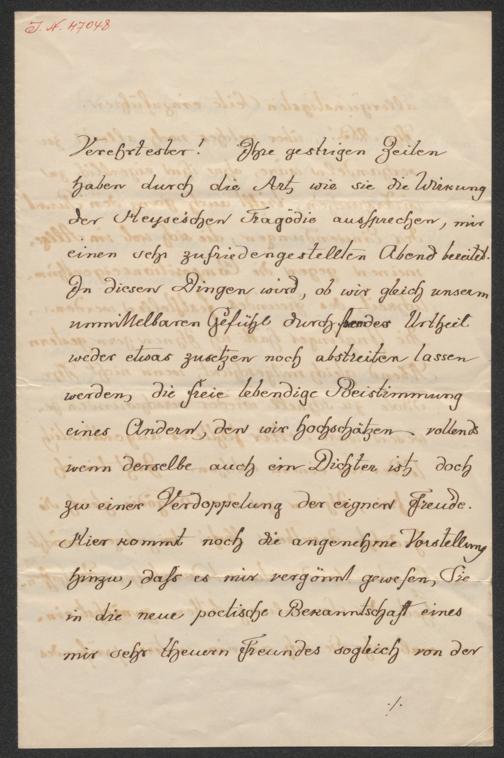 J. N. 47048
Verehrtester! Ihre gestrigen Zeilen
haben durch die Art, wie sie die Wirkung
der Heyse'schen Tragödie aussprechen, mir
einen sehr zufriedengestellten Abend bereitet.
In diesen Dingen wird, ob wir gleich unserm
unmittelbaren Gefühl durch Urtheil
weder etwas zusetzen noch abstreiten lassen
werden, die freie lebendige Beistimmung
eines Andern, den wir hochschätzen, vollends
wenn derselbe auch ein Dichter ist, doch
zu einer Verdoppelung der eignen Freude.
Hier kommt noch die angenehme Vorstellung
hinzu, dass es mir vergönnt gewesen, Sie
in die neue poetische Bekanntschaft eines
mir sehr theuern Freundes sogleich von der
./.